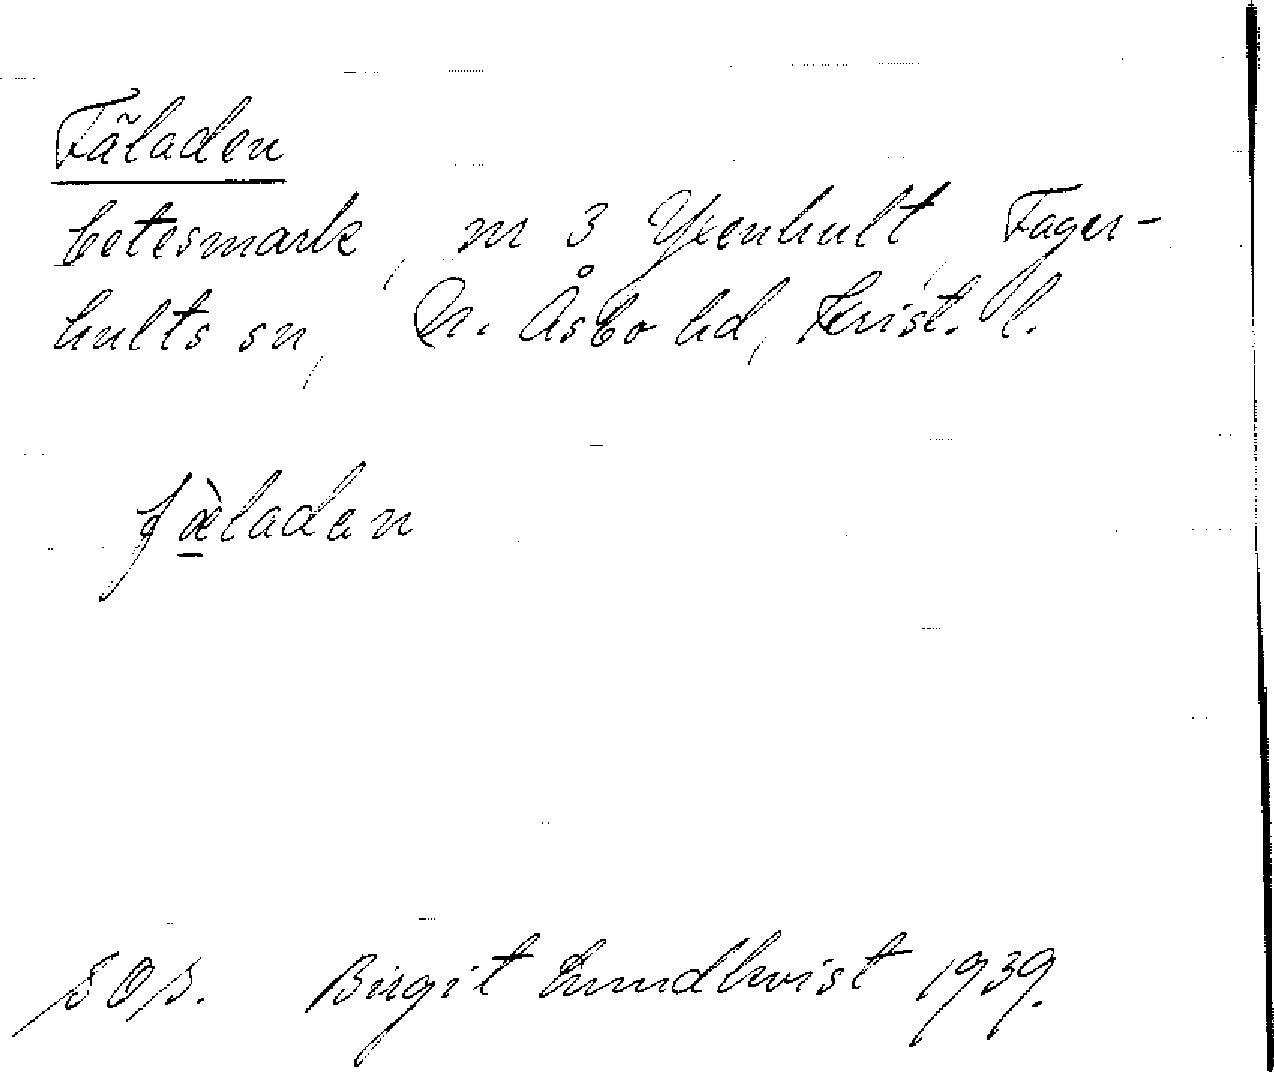 Fäladen
betesmark, nr 3 Yxenhult, Fager-
hults sn, N. Åsbo hd, Krist. l.
fæ̀ladan
SOS. Birgit Lundkvist 1939.